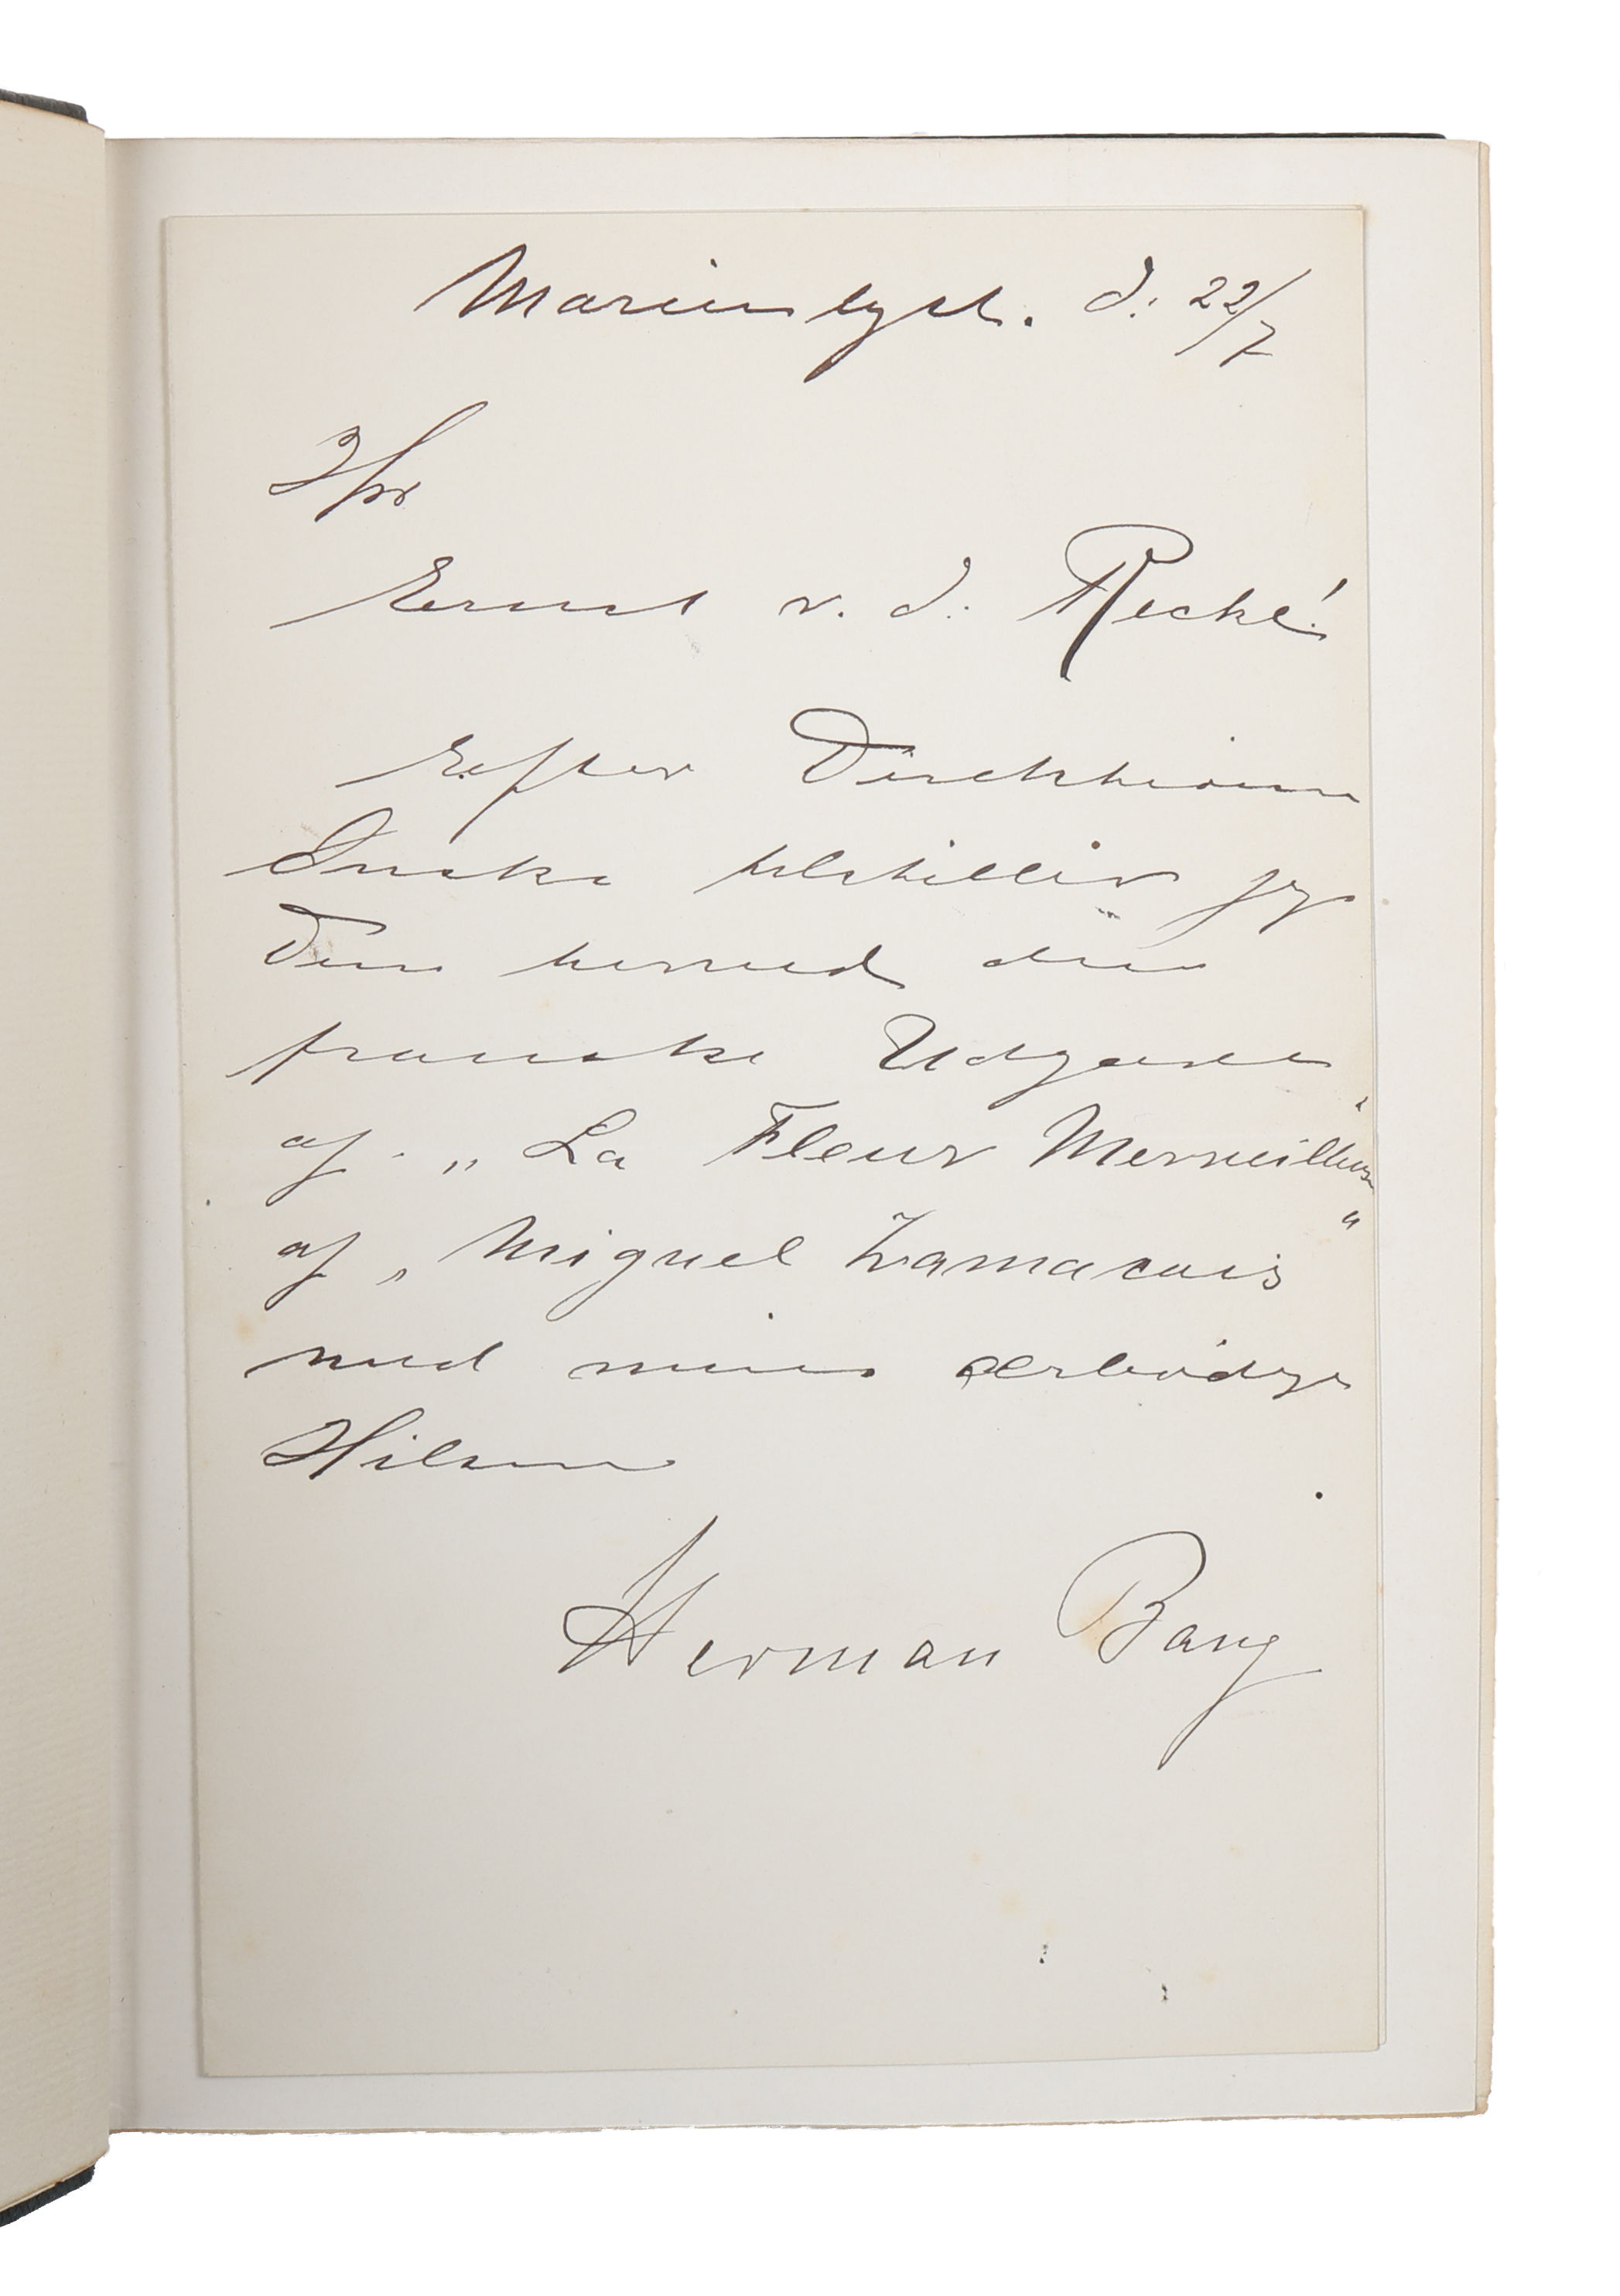 Marienlyst. d: 22/7
Hr
Ernst v. d. Recke!
Efter Direktionens
Ønske tilstiller jeg
Dem herved den
franske Udgave
af „La Fleur Merveilleuse"
af „Miguel Zamacois"
med min ærbødige
Hilsen
Herman Bang